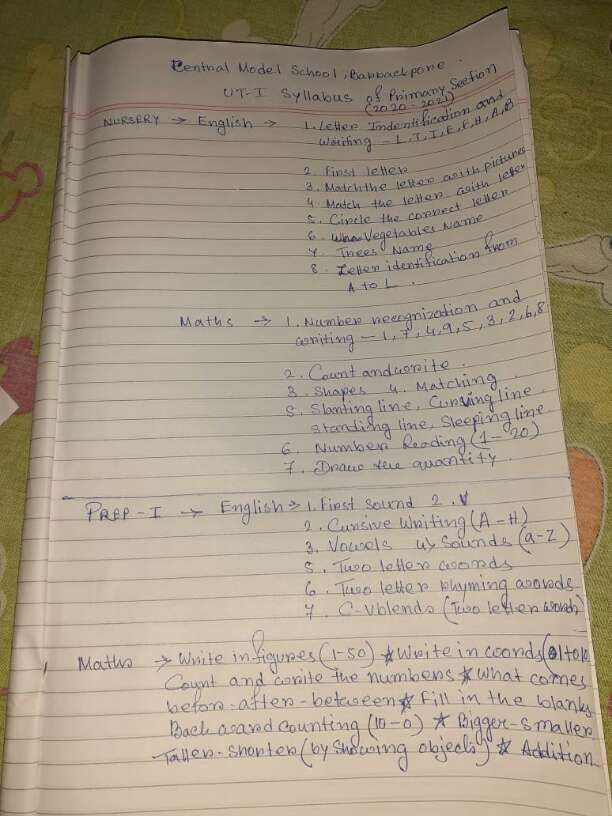 Central Model School, Barrackpore.
UT-I Syllabus of Primary Section
(2020-2021)
NURSERY → English → 1. Letter Indentification and
writing - L, T, I, E, F, H, A, B
2. First letter
3. Match the letter with pictures
4. Match the letter with letter
5. Circle the correct letter
6. Vegetables Name
7. Trees Name
8. Letter identification from
A to L.
Maths → 1. Number recognization and
writing - 1, 7, 4, 9, 5, 3, 2, 6, 8
2. Count and write.
3. Shapes 4. Matching.
5. Slanting line, Curving line
standing line, Sleeping line.
6. Number Reading (1-20)
7. Draw the quantity.
PREP-I → English → 1. First Sound 2.
2. Cursive Writing (A-H)
3. Vowels 4) Sounds (a-z)
5. Two letter words
6. Two letter rhyming words
7. C-V blends (Two letter words)
Maths → Write in figures (1-50) ★ Write in words (01 to 10
Count and write the numbers ★ What comes
before-after-between ★ Fill in the blanks
Backward counting (10-0) ★ Bigger-Smaller
Taller-Shorter (by showing objects) ★ Addition